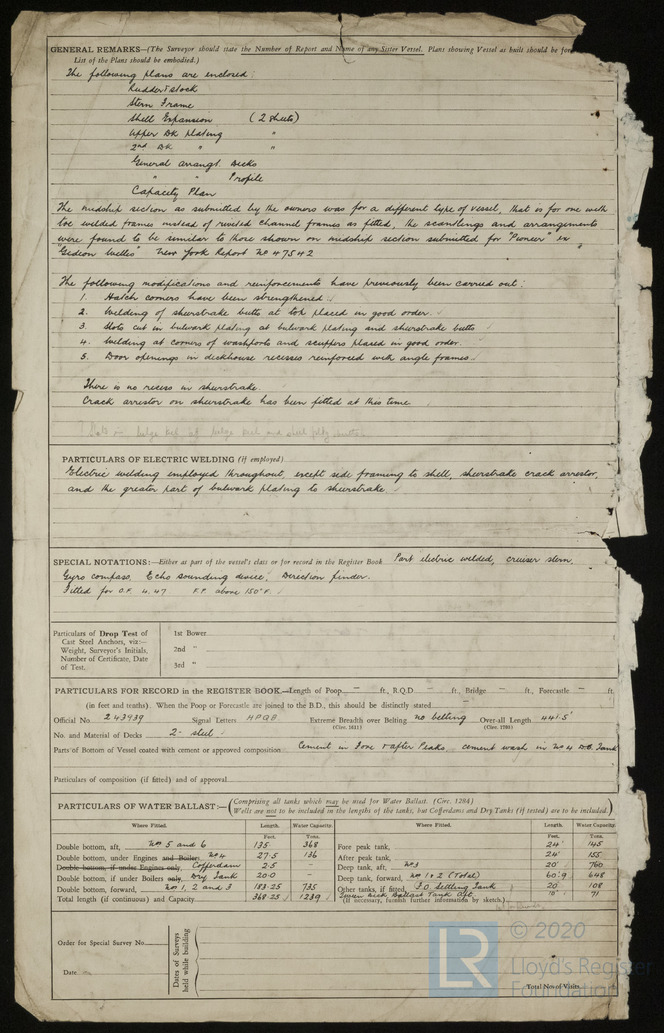 GENERAL REMARKS—(The Surveyor should state the Number of Report and Name of any Sister Vessel. Plans showing Vessel as built should be
List of the Plans should be embodied.)
The following plans are enclosed:
Rudder & stock
Stern Frame
Shell Expansion (2 sheets)
Upper Dk plating "
2nd Dk " "
General arrangt. Decks
" " Profile
Capacity Plan
The midship section as submitted by the owners was for a different type of vessel, that is for one with
toe welded frames instead of riveted channel frames as fitted, the scantlings and arrangements
were found to be similar to those shown on midship section submitted for "Pioneer" ex
"Gideon Welles" New York Report No 47542
The following modifications and reinforcements have previously been carried out:
1. Hatch corners have been strengthened.
2. Welding of sheerstrake butts at top placed in good order.
3. Slots cut in bulwark plating at bulwark plating and sheerstrake butts
4. Welding at corners of washports and scuppers placed in good order.
5. Door openings in deckhouse recesses reinforced with angle frames.
There is no recess in sheerstrake.
Crack arrestor on sheerstrake has been fitted at this time.
PARTICULARS OF ELECTRIC WELDING (if employed)
Electric welding employed throughout, except side framing to shell, sheerstrake crack arrestor,
and the greater part of bulwark plating to sheerstrake.
SPECIAL NOTATIONS:—Either as part of the vessel's class or for record in the Register Book Part electric welded, cruiser stern,
Gyro compass, Echo sounding device, Direction finder.
Fitted for O.F. 4.47 F.P. above 150°F.
Particulars of Drop Test of
Cast Steel Anchors, viz:—
Weight, Surveyor's Initials,
Number of Certificate, Date
of Test.
1st Bower
2nd "
3rd "
PARTICULARS FOR RECORD in the REGISTER BOOK.—Length of Poop — ft., R.Q.D. — ft., Bridge — ft., Forecastle — ft.
(in feet and tenths). When the Poop or Forecastle are joined to the B.D., this should be distinctly stated
Official No. 243939 Signal Letters HPQB Extreme Breadth over Belting no belting Over-all Length 441.5'
(Circ. 1611) (Circ. 1703)
No. and Material of Decks 2 - steel
Parts of Bottom of Vessel coated with cement or approved composition Cement in Fore & after Peaks, cement wash in No 4 D.B. Tank
Particulars of composition (if fitted) and of approval
PARTICULARS OF WATER BALLAST:— (Comprising all tanks which may be used for Water Ballast. (Circ. 1284)
Wells are not to be included in the lengths of the tanks, but Cofferdams and Dry Tanks (if tested) are to be included.)
Where Fitted. Length. Water Capacity. Where Fitted. Length. Water Capacity.
Feet. Tons. Feet. Tons.
Double bottom, aft, Nos 5 and 6 135 368 Fore peak tank, 24' 145
Double bottom, under Engines and Boilers No 4 27.5 136 After peak tank, 24' 155
Double bottom, if under Engines only, Cofferdam 2.5 — Deep tank, aft, No 3 20' 760
Double bottom, if under Boilers only, Dry Tank 20.0 Deep tank, forward, Nos 1 & 2 (Total) 60.9 648
Double bottom, forward, Nos 1, 2 and 3 183.25 735 Other tanks, if fitted, F.O. Settling Tank 20' 108
Total length (if continuous) and Capacity 368.25 1239 Ballast Tank Aft 71
(If necessary, furnish further information by sketch.)
Order for Special Survey No.
Date
Dates of Surveys
held while building
Total No. of Visits
© 2020
LR
Lloyd's Register
Foundation